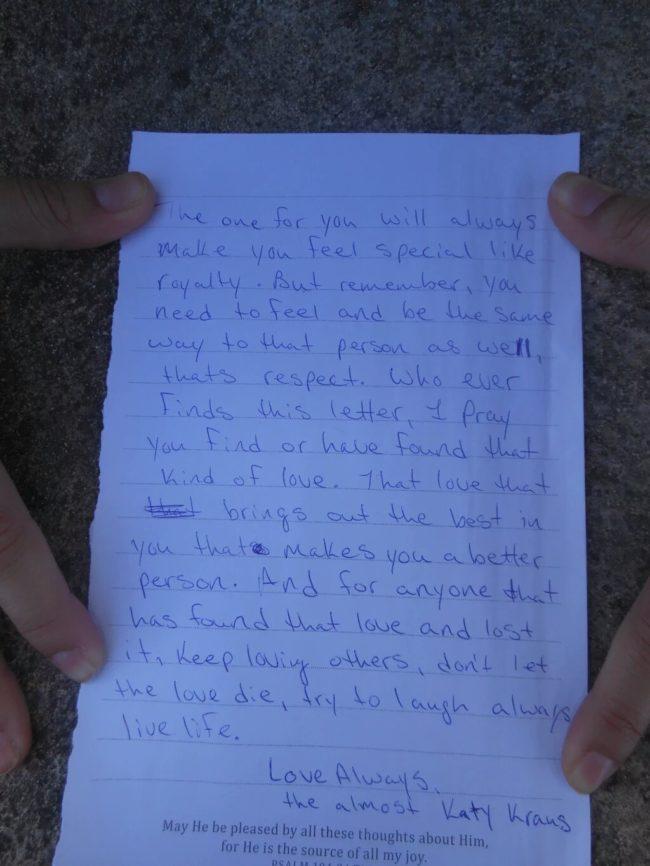 The one for you will always
make you feel special like
royalty. But remember, you
need to feel and be the same
way to that person as well,
thats respect. Who ever
finds this letter, I pray
you find or have found that
kind of love. That love that
brings out the best in
you that makes you a better
person. And for anyone that
has found that love and lost
it, Keep loving others, don't let
the love die, try to laugh always
live life.
Love Always,
the almost Katy Kraus
May He be pleased by all these thoughts about Him,
for He is the source of all my joy.
PSALM